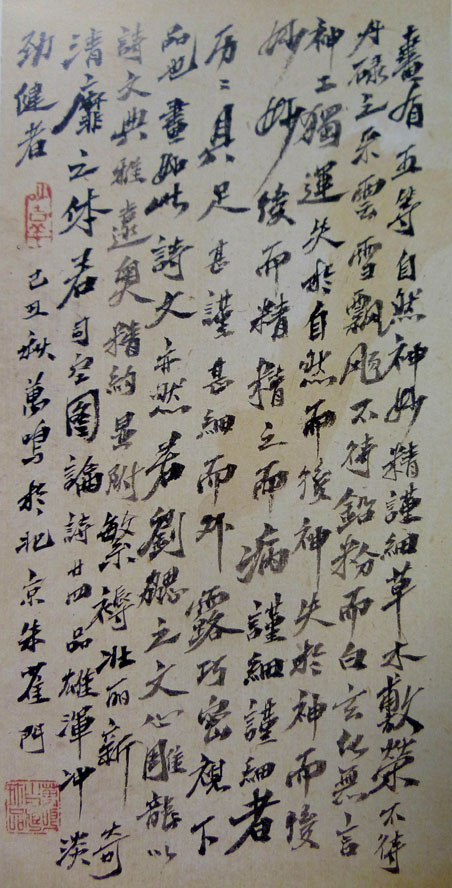 畫有五等自然神妙精謹細草木敷榮不待
丹碌之采雲雪飄颺不待鉛粉而白玄化無言
神工獨運失於自然而後神失於神而後
妙妙後而精精之而病謹細謹細者
历〻具足甚謹甚細而外露巧密視下
品也畫如此詩文亦然若劉勰之文心雕龍以
詩文典雅遠奥精約显附繁褥壮丽新奇
清靡之体若司空图論詩廿四品雄渾冲淡
劲健者
己丑秋萬鳴於北京朱雀門